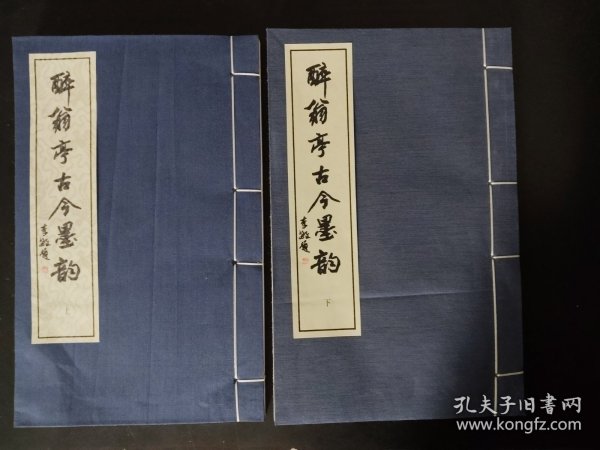 醉翁亭古今墨韵
上
醉翁亭古今墨韵
下
孔夫子旧书网
www.kongfz.com